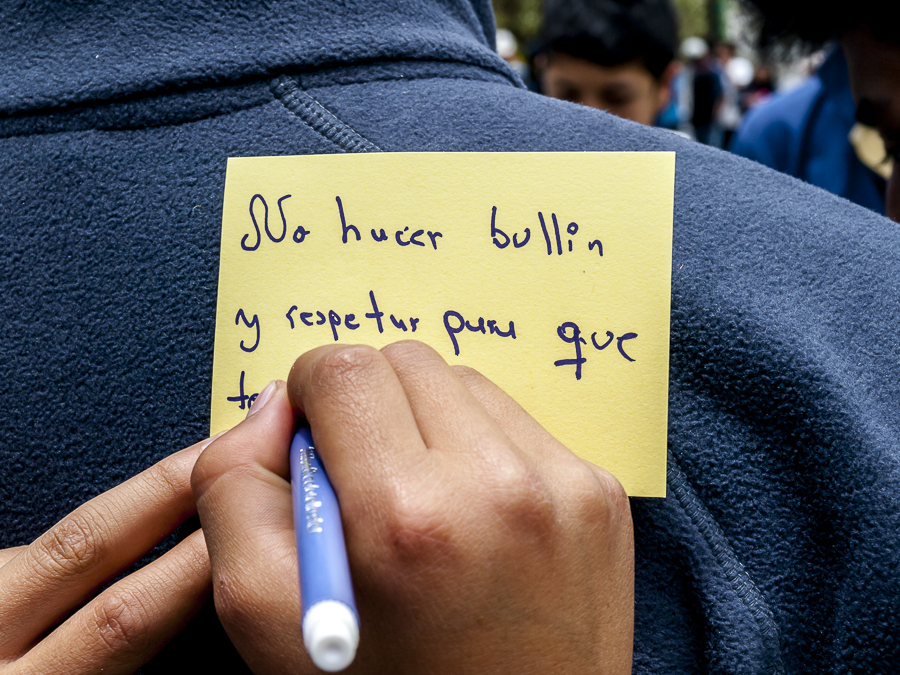 No hacer bullin
y respetar para que